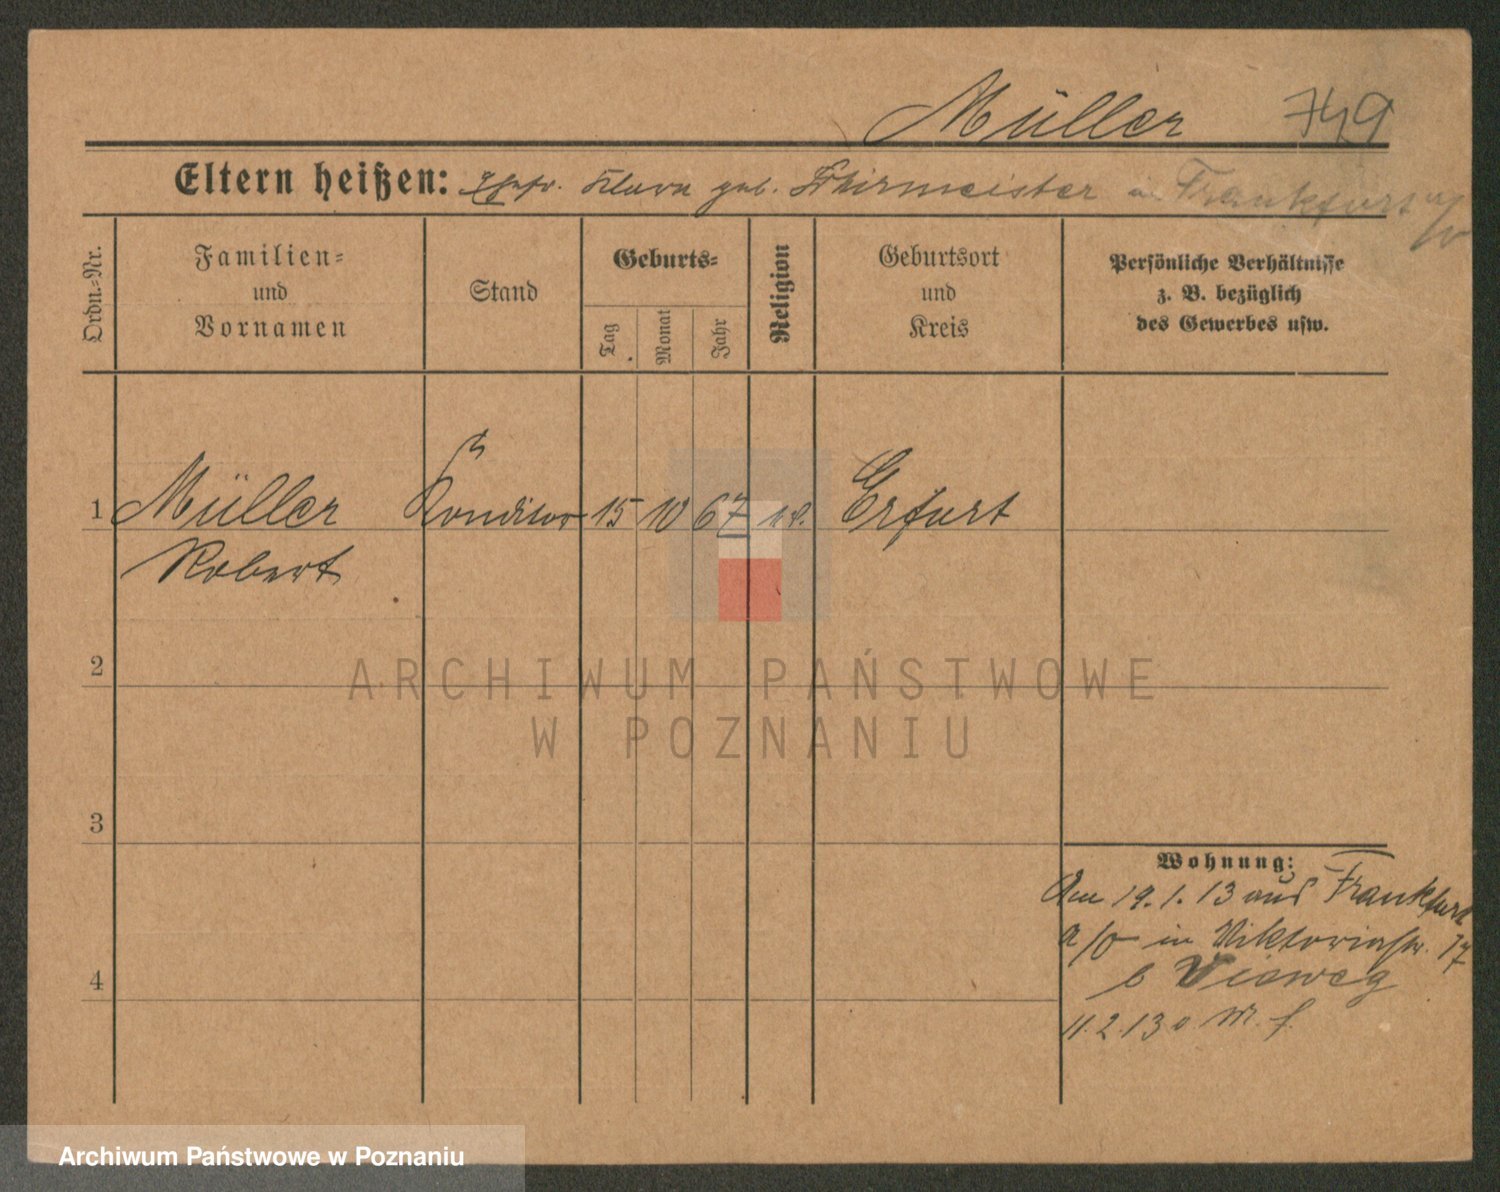 Müller 749
Eltern heißen: Ehefr. Klara geb. Schirmeister in Frankfurt a/O
Ordn.-Nr.
Familien-
und
Vornamen
Stand
Geburts-
Tag
Monat
Jahr
Religion
Geburtsort
und
Kreis
Persönliche Verhältnisse
z. B. bezüglich
des Gewerbes usw.
1 Müller Konditor 15 10 67 ev. Erfurt
Robert
2
ARCHIWUM PAŃSTWOWE
W POZNANIU
3
Wohnung:
Am 19.1.13 aus Frankfurt
a/O in Viktoriastr. 17
4
b Vieweg
11.2.13
Archiwum Państwowe w Poznaniu